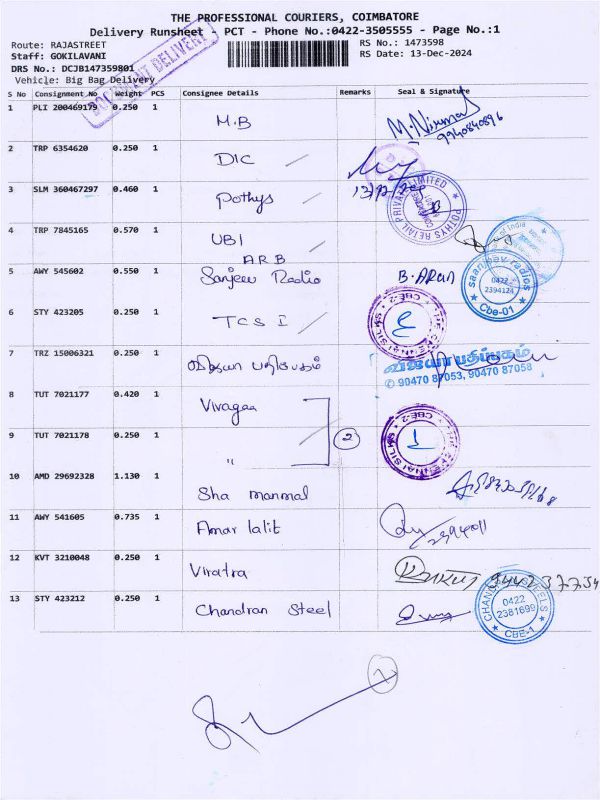 THE PROFESSIONAL COURIERS, COIMBATORE
Delivery Runsheet - PCT - Phone No.:0422-3505555 - Page No.:1
Route: RAJASTREET
RS No.: 1473598
Staff: GOKILAVANI
RS Date: 13-Dec-2024
DRS No.: DCJB147359801
Vehicle: Big Bag Delivery
DOCUMENT DELIVERY
S No Consignment No Weight PCS Consignee Details Remarks Seal & Signature
1 PLI 200469179 0.250 1 M.B M.Nirmal
9940840896
2 TRP 6354620 0.250 1 DIC
3 SLM 360467297 0.460 1 Pothys
POTHYS RETAIL PRIVATE LIMITED
4 TRP 7845165 0.570 1 UBI
ARB
5 AWY 545602 0.550 1 Sanjeev Radio B. Arun
saanjeev-radios
0422
2394124
Cbe-01
6 STY 423205 0.250 1 TCS I
THE CHENNAI SILKS
CBE-2
7 TRZ 15006321 0.250 1 விஜயா பதிப்பகம்
விஜயா பதிப்பகம்
90470 87053, 90470 87058
8 TUT 7021177 0.420 1 Vivagaa
2
9 TUT 7021178 0.250 1 "
THE CHENNAI SILKS
CBE-2
10 AMD 29692328 1.130 1 Sha manmal
11 AWY 541605 0.735 1 Amar lalit
12 KVT 3210048 0.250 1 Viratra
944237734
13 STY 423212 0.250 1 Chandran Steel
CHANDRAN STEELS
0422
2381699
CBE-1